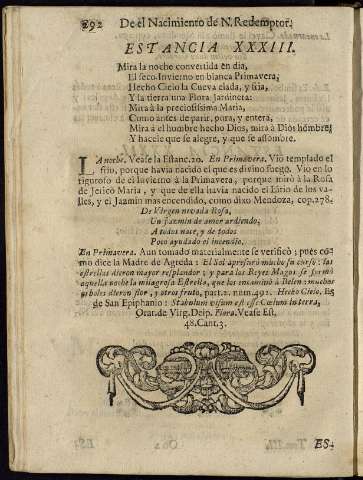 292 De el Nacimiento de N. Redemptor.
ESTANCIA XXXIII.
Mira la noche convertida en dia,
El seco Invierno en blanca Primavera,
Hecho Cielo la Cueva elada, y fria,
Y la tierra una Flora Jardinera:
Mira à la preciosissima Maria,
Como antes de parir, pura, y entera,
Mira à el hombre hecho Dios, mira à Dios hõmbre,
Y hacele que se alegre, y que se assombre.
LA noche. Vease la Estanc. 20. En Primavera. Viò templado el
frio, porque havia nacido el que es divino fuego. Viò en lo
riguroso de el Invierno à la Primavera, porque mirò à la Rosa
de Jericò Maria, y que de ella havia nacido el Lirio de los va-
lles, y el Jazmin mas encendido, como dixo Mendoza, cop. 278.
De Virgen nevada Rosa,
Un jazmin de amor ardiendo,
A todos nace, y de todos
Poco ayudado el incendio.
En Primavera. Aun tomado materialmente se verificò; pues co-
mo dice la Madre de Agreda: El Sol apresurò mucho su curso: las
estrellas dieron mayor resplandor; y para los Reyes Magos se formò
aquella noche la milagrosa Estrella, que los encaminò à Belen: muchos
arboles dieron flor, y otros fruto, part. 2. num. 492. Hecho Cielo. Es
de San Epiphanio: Stabulum visum est esse Cælum in terra,
Orat. de Virg. Deip. Flora. Vease Est.
48. Cant. 3.
ES-